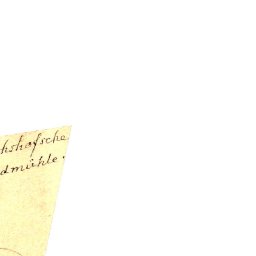 hshofsche
dmühle.